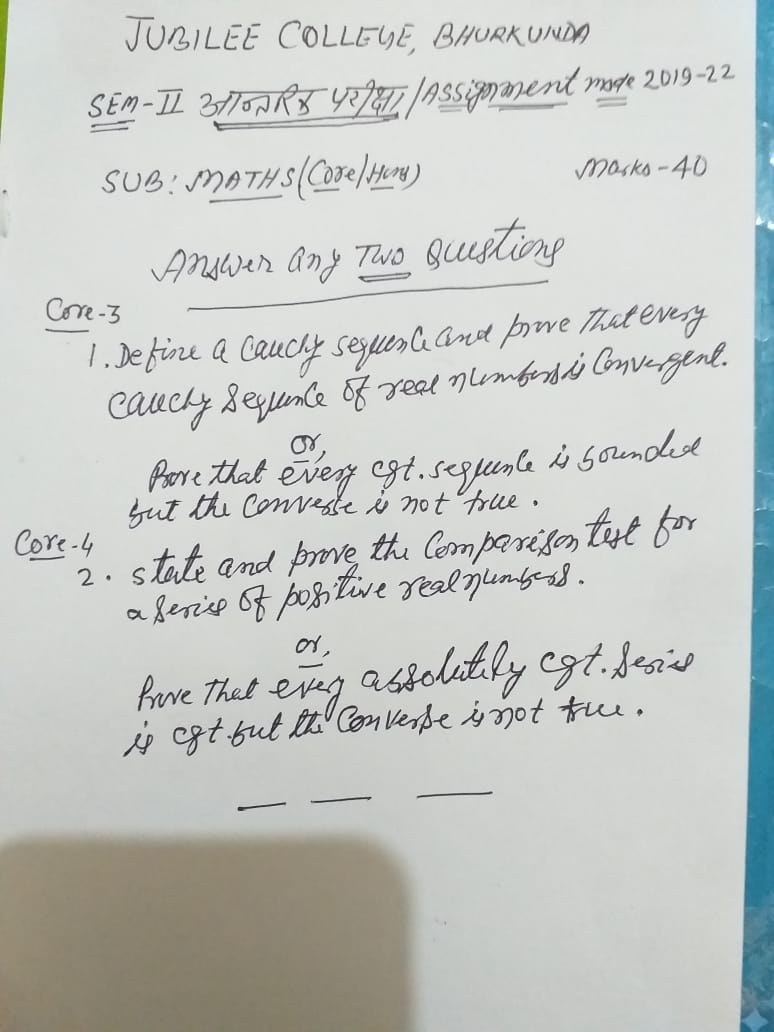 JUBILEE COLLEGE, BHURKUNDA
SEM-II आन्तरिक परीक्षा/Assignment mode 2019-22
SUB: MATHS(Core/Hons) Marks-40
Answer any Two Questions
Core-3
1. Define a Cauchy sequence and prove that every
Cauchy Sequence of real numbers is Convergent.
or,
Prove that every cgt. sequence is bounded
but the converse is not true.
Core-4
2. state and prove the Comparison test for
a series of positive real numbers.
or,
Prove that every absolutely cgt. series
is cgt. but the Converse is not true.